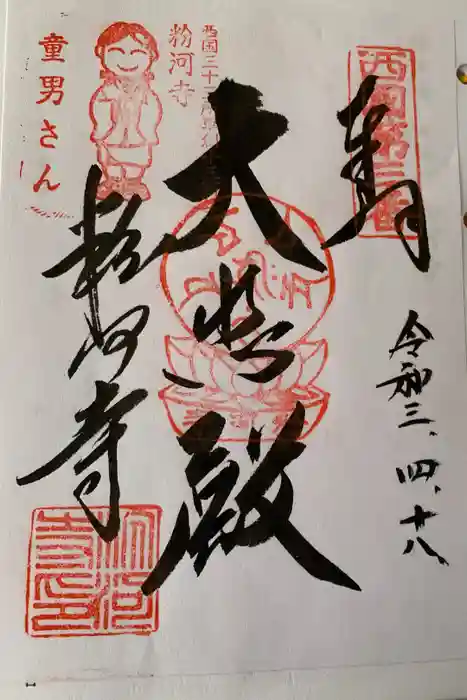 奉拝
西国第三番
令和三、四、十八
大悲殿
西国三十三
粉河寺
童男さん
粉河寺